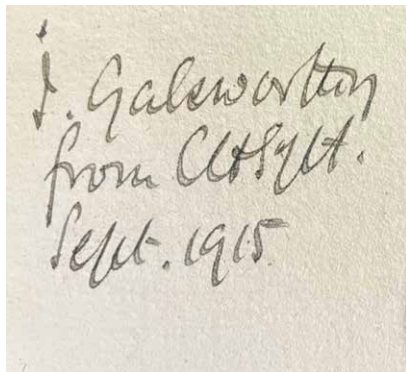 J. Galsworthy
from CHStJH.
Sept. 1915